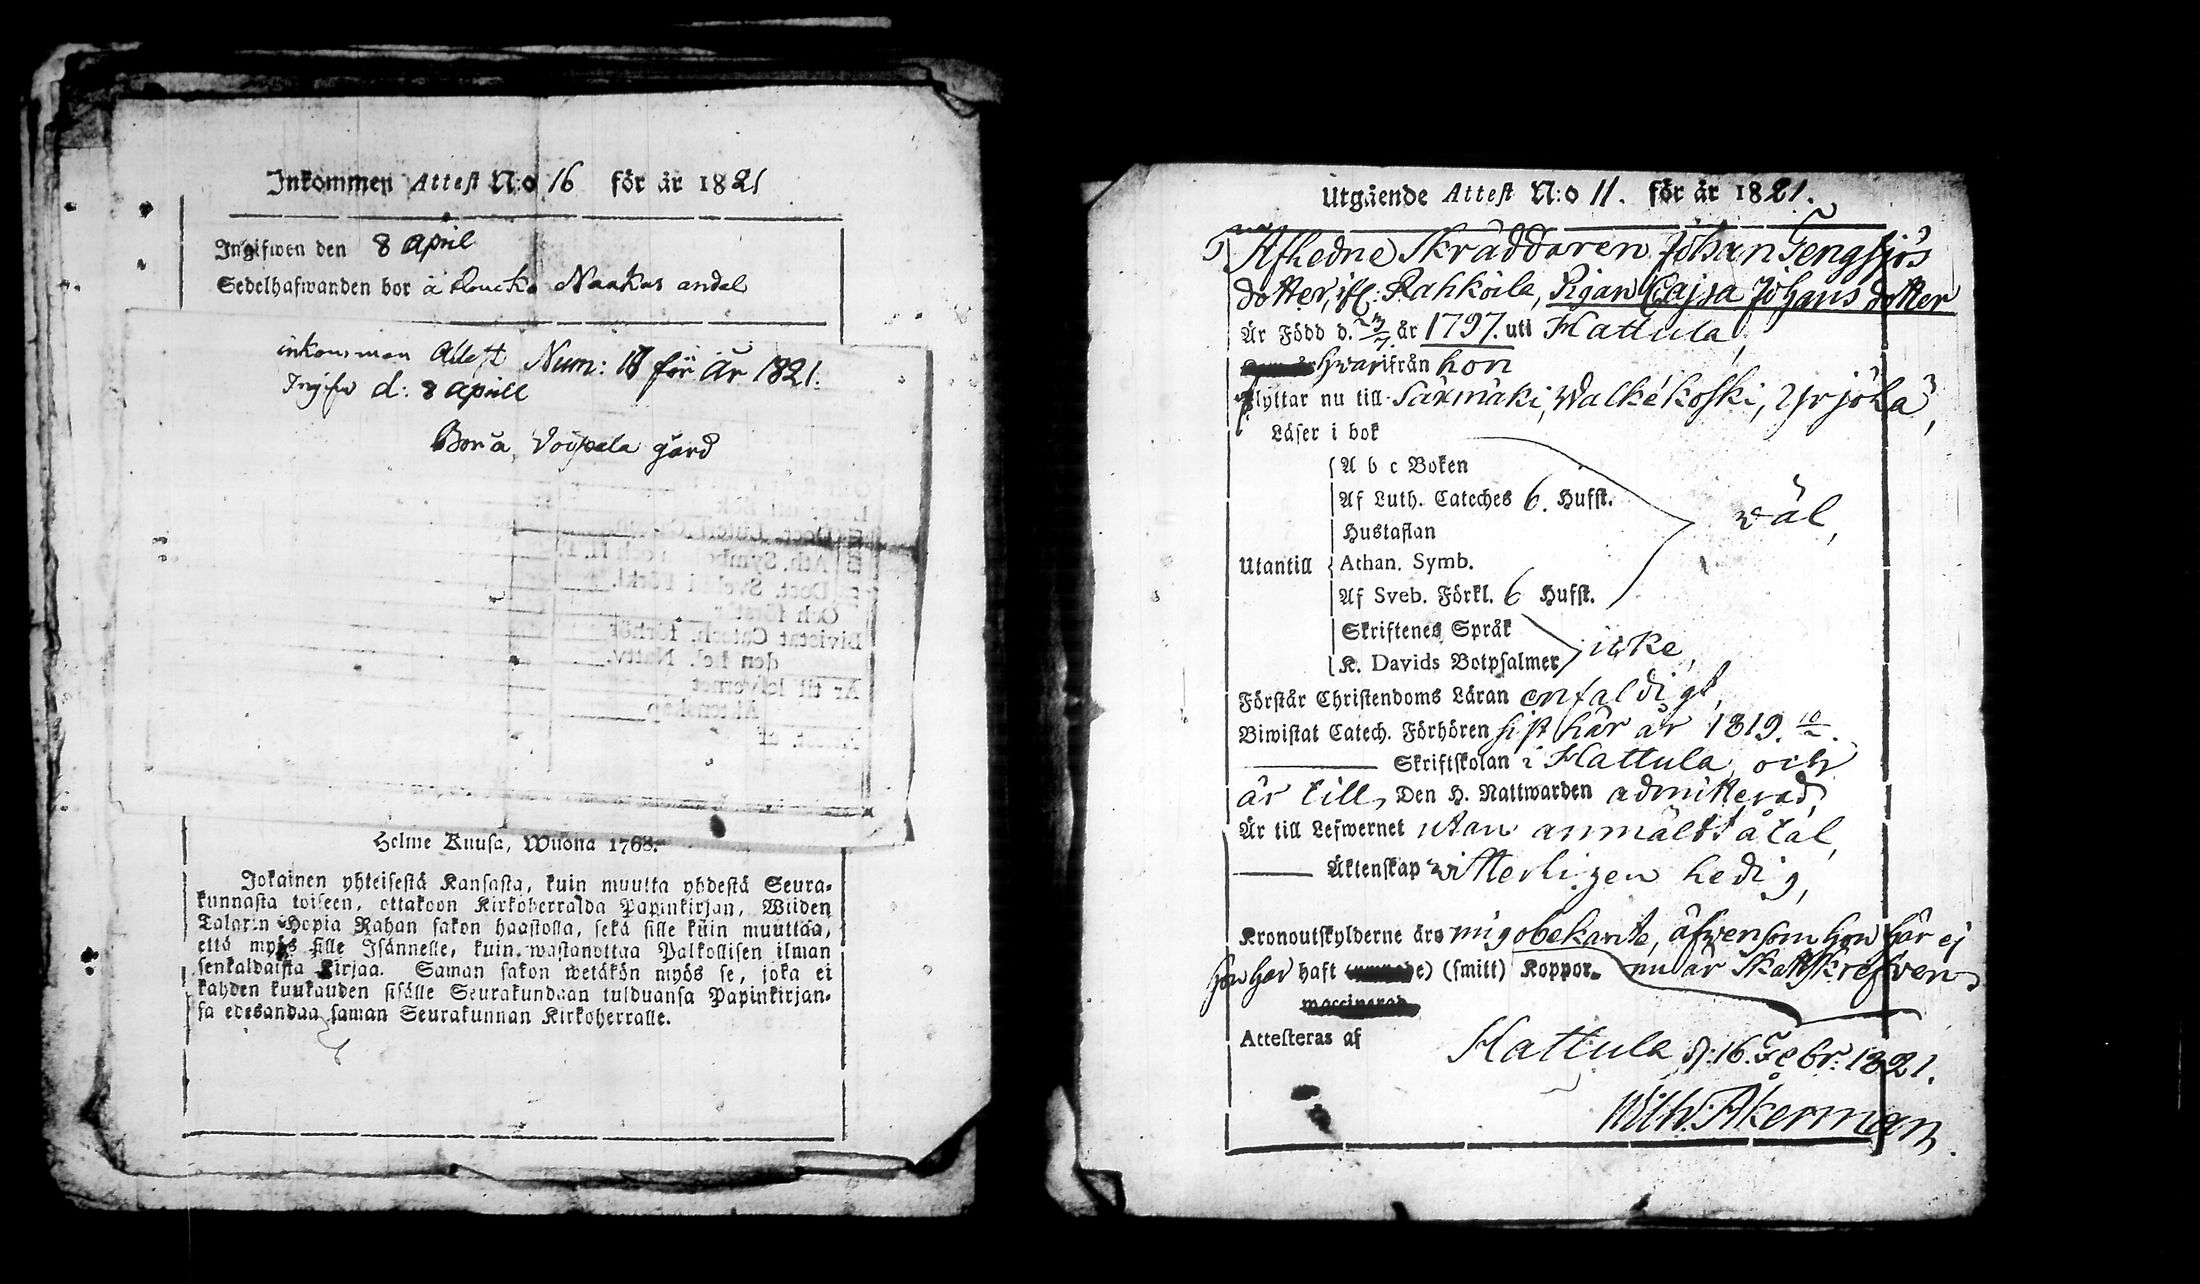 Inkommen Attest N:o 16 för år 1821
Ingifwen den 8 April
Sedelhafwanden bor å Naakas andel
inkommen Attest Num: för år 1821.
Ingifw d: 8 Aprill
Bor å Voipala gård
Helme Kuusa, Wuona 1763.
Jokainen yhteisestä Kansasta, kuin muutta yhdestä Seura-
kunnasta toiseen, ottakoon Kirkoherralda Papinkirjan, Wiiden
Talarin Hopia Rahan sakon haastolla, sekä sille kuin muuttaa,
että myös sille Isännelle, kuin wastanottaa Palkollisen ilman
senkaldaista Kirjaa. Saman sakon wetäkön myös se, joka ei
kahden kuukauden sisälle Seurakundaan tulduansa Papinkirjan-
sa edesandaa saman Seurakunnan Kirkoherralle.
Utgående Attest N:o 11. för år 1821.
Afledne Skräddaren Johan Fengsjös
dotter, ifr: Rahkoila, Pigan Cajsa Johans dotter
Är Född d. 3/7 år 1797. uti Hattula,
hwarifrån hon
flyttar nu till Säxmäki, Walkékoski, Yrjölä,
Läser i bok
A b c Boken
Af Luth. Cateches 6. Hufst.
wäl,
Hustaflan
Utantill Athan. Symb.
Af Sveb. Förkl. 6 Hufst.
Skriftenes Språk
icke,
K. Davids Botpsalmer
Förstår Christendoms Läran enfaldigt,
Biwistat Catech. Förhören sist här år 1819.
Skriftskolan i Hattula, och
är till Den H. Nattwarden admitterad,
Är till Lefwernet utan anmäldt åtal,
Äktenskap witterligen ledig,
Kronoutskylderne äro mig obekante, äfwensom hon här ej
hon har haft (smitt) Koppor. nu är Skattskrefwen,
Attesteras af
Hattula d. 16. Febr: 1821.
Wilh: Åkerman